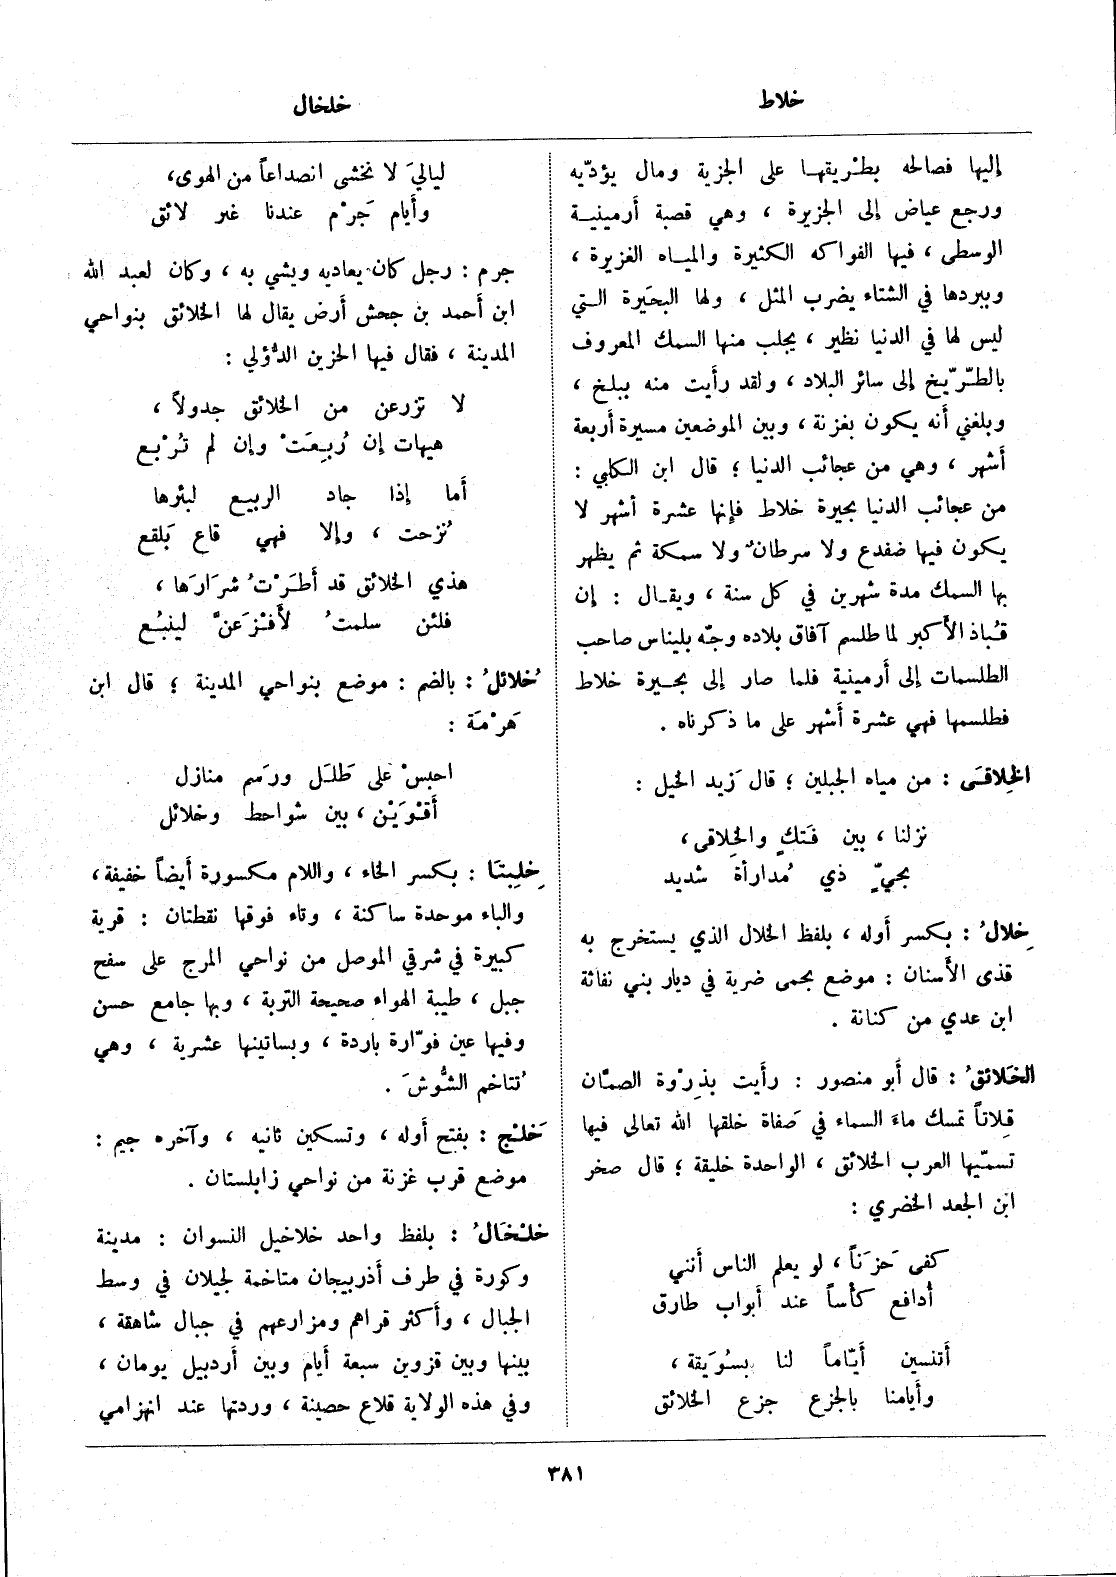 خلاط
خلخال
إليها فصالحه بطْريقهـا على الجزية ومال يؤدّيه
ورجع عياض إلى الجزيرة ، وهي قصبة أرمينيـة
الوسطى ، فيها الفواكه الكثيرة والميـاه الغزيرة ،
وببردها في الشتاء يضرب المثل ، ولها البحَيرة التي
ليس لها في الدنيا نظير ، يجلب منها السمك المعروف
بالطّرّيخ إلى سائر البلاد ، ولقد رأيت منه ببلخ ،
وبلغني أنه يكون بغزنة ، وبين الموضعين مسيرة أربعة
أشهر ، وهي من عجائب الدنيا ؛ قال ابن الكلبي :
من عجائب الدنيا بحيرة خلاط فإنها عشرة أشهر لا
يكون فيها ضفدع ولا سرطانٌ ولا سمكة ثم يظهر
بها السمك مدة شهرين في كل سنة ، ويقـال : إن
قُباذ الأكبر لما طلسم آفاق بلاده وجّه بليناس صاحب
الطلسمات إلى أرمينية فلما صار إلى بحـيرة خلاط
فطلسمها فهي عشرة أشهر على ما ذكرناه .
الخِلاقَى : من مياه الجبلين ؛ قال زَيد الخيل :
نزلنا ، بين فَتكٍ والخِلاقى ،
بحيٍّ ذي مُدارأة شديد
خِلالُ : بكسر أوله ، بلفظ الخلال الذي يستخرج به
قذى الأسنان : موضع بحمى ضرية في ديار بني نفاثة
ابن عدي من كنانة .
الخَلائقُ : قال أبو منصور : رأيت بذِرْوة الصمّان
قِلاتاً تمسك ماءَ السماء في صَفاة خلقها الله تعالى فيها
تسمّيها العرب الخلائق ، الواحدة خليقة ؛ قال صخر
ابن الجعد الخضري :
كفى حَزَناً ، لو يعلم الناس أنني
أُدافع كأساً عند أبواب طارق
أتنسين أيّاماً لنا بسُوَيقة ،
وأيامنا بالجزع جزع الخلائق
لياليَ لا نخشى انصداعاً من الهوى،
وأيام جَرْم عندنا غير لائق
جرم : رجل كان يعاديه ويشي به ، وكان لعبد الله
ابن أحمد بن جحش أرض يقال لها الخلائق بنواحي
المدينة ، فقال فيها الحزين الدُّؤلي :
لا تزرعن من الخلائق جدولاً ،
هيهات إن رُبِعَتْ وإن لم تُرْبع
أما إذا جاد الربيع لبئرها
نُزحت ، وإلا فهي قاع بَلقع
هذي الخلائق قد أطَرْتُ شرَارَها ،
فلئن سلمتُ لأَفْزَعَنَّ لينبُع
خُلائلُ : بالضم : موضع بنواحي المدينة ؛ قال ابن
هَرْمَة :
احبِسْ على طَلَل ورَسم منازل
أَقْوَيْن ، بين شواحط وخلائل
خِلِبتَا : بكسر الخاء ، واللام مكسورة أيضاً خفيفة ،
والباء موحدة ساكنة ، وتاء فوقها نقطتان : قرية
كبيرة في شرقي الموصل من نواحي المرج على سفح
جبل ، طيبة الهواء صحيحة التربة ، وبها جامع حسن
وفيها عين فوّارة باردة ، وبساتينها عشرية ، وهي
تُتاخم الشُّوشَ .
خَلْج : بفتح أوله ، وتسكين ثانيه ، وآخره جيم :
موضع قرب غزنة من نواحي زابلستان .
خلْخَالُ : بلفظ واحد خلاخيل النسوان : مدينة
وكورة في طرف أذربيجان متاخمة لجيلان في وسط
الجبال ، وأكثر قراهم ومزارعهم في جبال شاهقة ،
بينها وبين قزوين سبعة أيام وبين أردبيل يومان ،
وفي هذه الولاية قلاع حصينة ، وردتها عند انهزامي
٣٨١